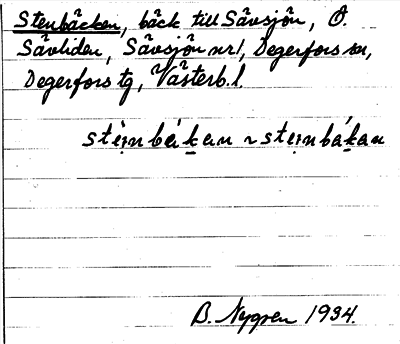 Stenbäcken, bäck till Sävsjön, Ö.
Sävliden, Sävsjön nr 1, Degerfors sn,
Degerfors tg, Västerb. l.
ste̩i̩nbákan ~ stei̩nbákan
B. Nygren 1934.